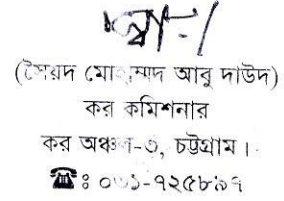 স্বাঃ/
(সৈয়দ মোহাম্মদ আবু দাউদ)
কর কমিশনার
কর অঞ্চল-৩, চট্টগ্রাম।
☎ঃ ০৩১-৭২৫৮৯৭